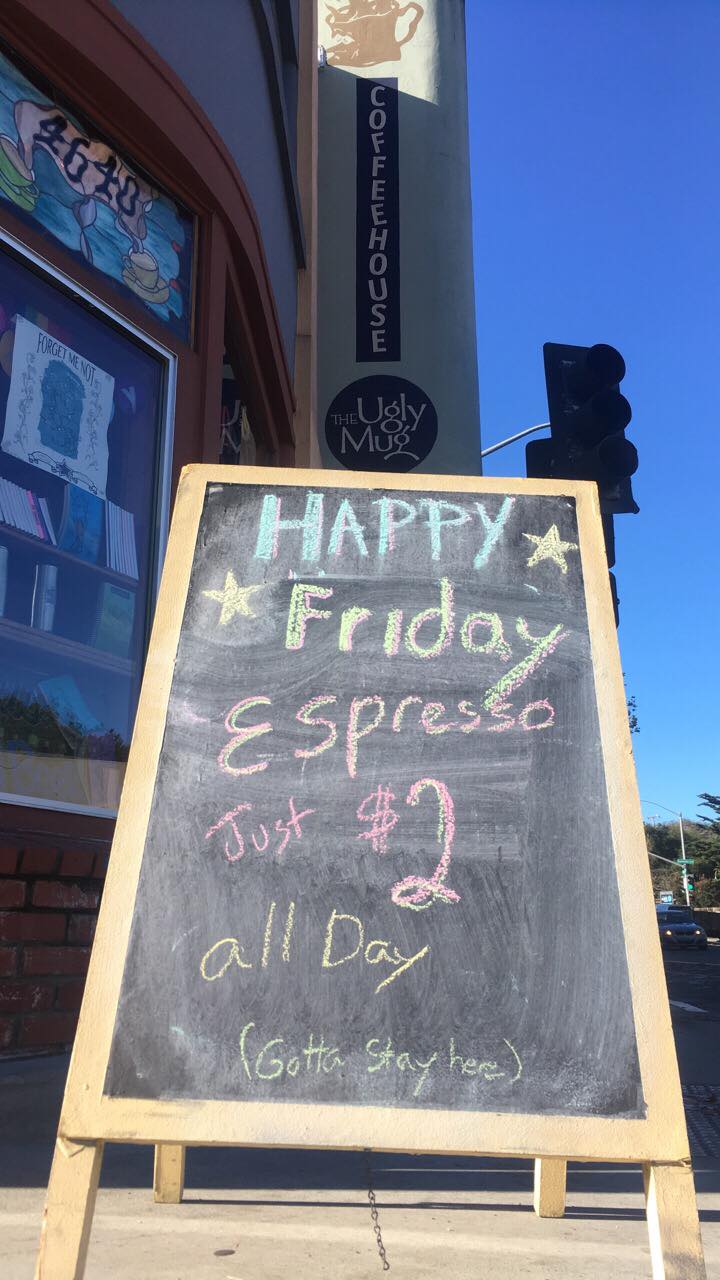 4640
COFFEEHOUSE
THE Ugly
Mug
FORGET ME NOT
HAPPY
Friday
Espresso
Just $2
all Day
(Gotta Stay here)